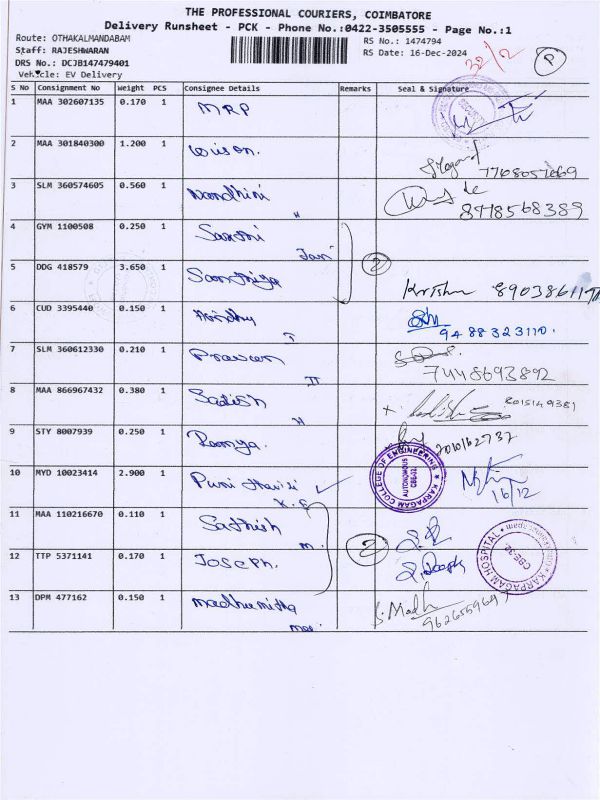 THE PROFESSIONAL COURIERS, COIMBATORE
Delivery Runsheet - PCK - Phone No.:0422-3505555 - Page No.:1
Route: OTHAKALMANDABAM
RS No.: 1474794
Staff: RAJESHWARAN
RS Date: 16-Dec-2024
22/12
P
DRS No.: DCJB147479401
Vehicle: EV Delivery
S No Consignment No Weight PCS Consignee Details Remarks Seal & Signature
1 MAA 302607135 0.170 1 MRP
2 MAA 301840300 1.200 1 Wison.
7708057669
3 SLM 360574605 0.560 1 Nandhini
8778568389
4 GYM 1100508 0.250 1 Santhi
Jani
2
5 DDG 418579 3.650 1 Santhiya Krishna
6 CUD 3395440 0.150 1
9488323110.
7 SLM 360612330 0.210 1 Praveen
7448693892
8 MAA 866967432 0.380 1 Satish
9 STY 8007939 0.250 1 Ramya.
10 MYD 10023414 2.900 1
KARPAGAM COLLEGE OF ENGINEERING
AUTONOMOUS
CBE-32
16/12
11 MAA 110216670 0.110 1 Sathish
m.
2
12 TTP 5371141 0.170 1 Joseph.
KARPAGAM HOSPITAL
CBE-32
13 DPM 477162 0.150 1 Madhumitha
S. Madh